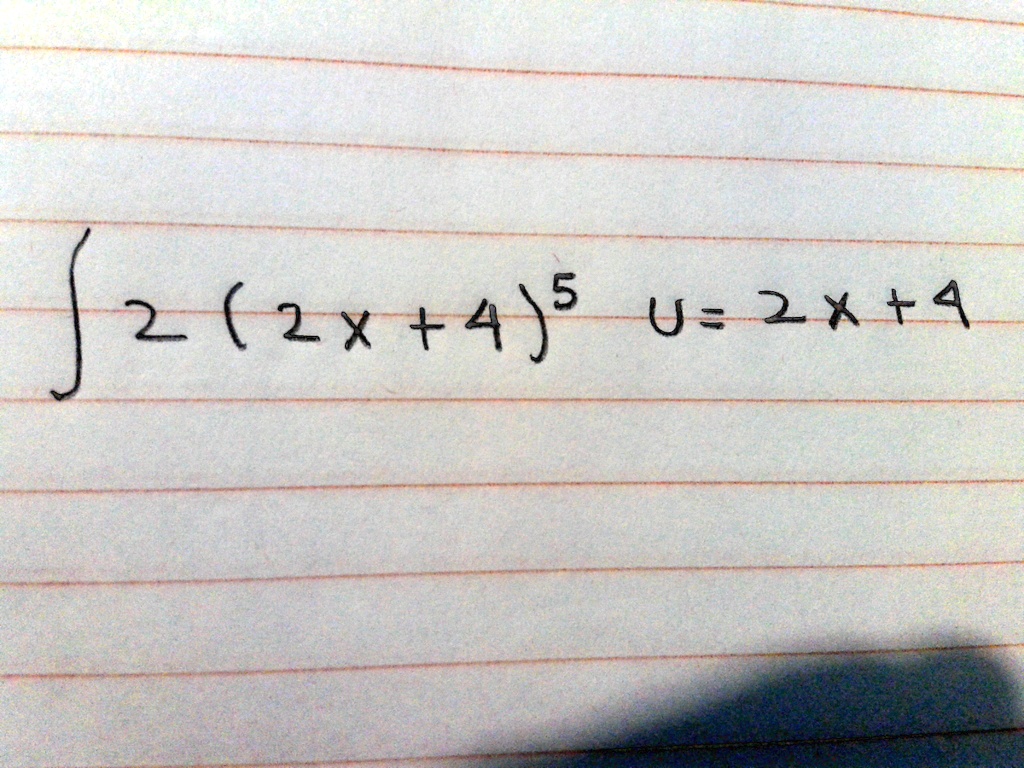 ∫ 2 (2x + 4)⁵ u = 2x + 4